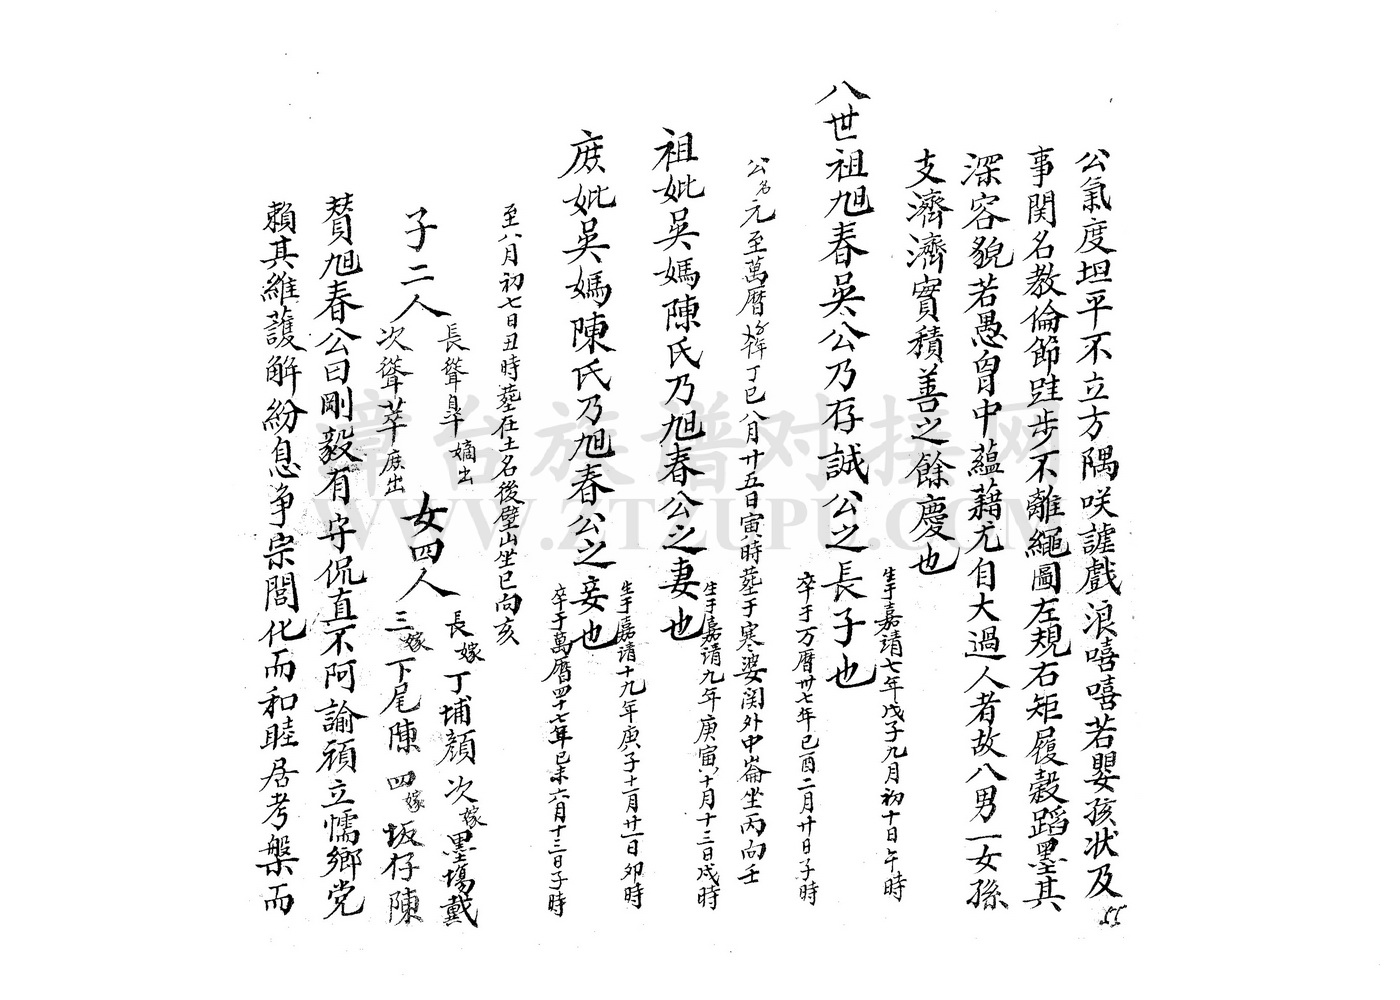 公氣度坦平不立方隅咲謔戲浪嘻嘻若嬰孩状及
事関名教倫節跬步不離繩圖左規右矩履穀蹈墨其
深容貌若愚胷中蘊藉尤自大過人者故八男一女孫
支濟濟實積善之餘慶也
八世祖旭春吳公乃存誠公之長子也
生于嘉靖七年戊子九月初十日午時
卒于万曆卅七年己酉二月廿日子時
公名元至萬曆丁巳八月廿五日寅時葬于寒婆関外中崙坐丙向壬
祖妣吳媽陳氏乃旭春公之妻也
生于嘉靖九年庚寅十月十三日戌時
庶妣吳媽陳氏乃旭春公之妾也
生于嘉靖十九年庚子十一月廿一日卯時
卒于萬曆四十七年己未六月十三日子時
至八月初七日丑時葬在土名後壁山坐巳向亥
子二人
長聳臯嫡出
次聳萃庶出
女四人
長嫁丁埔顏 次嫁墨塲戴
三嫁下尾陳 四嫁坂仔陳
賛旭春公曰剛毅有守侃直不阿諭頑立懦鄉党
賴其維護解紛息争宗閭化而和睦居考槃而
55
漳台族谱对接网
WWW.ZTZUPU.COM